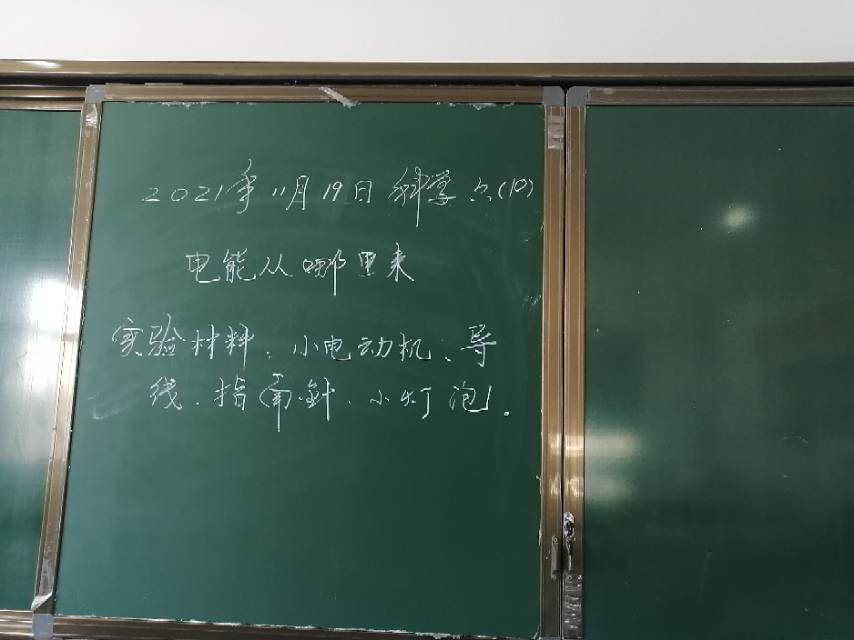 2021年11月19日 科学六(10)
电能从哪里来
实验材料、小电动机、导
线、指南針、小灯泡.